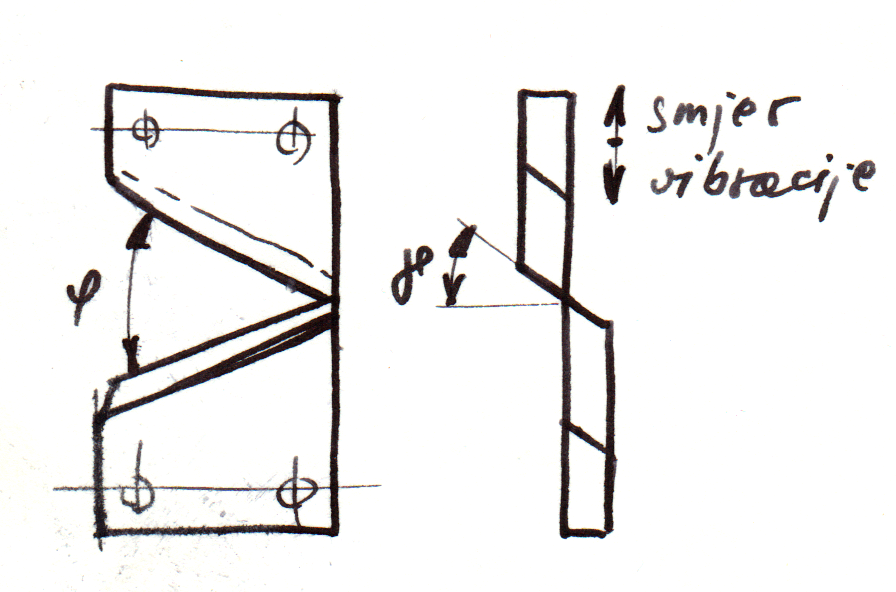 smjer
vibracije
φ
γ